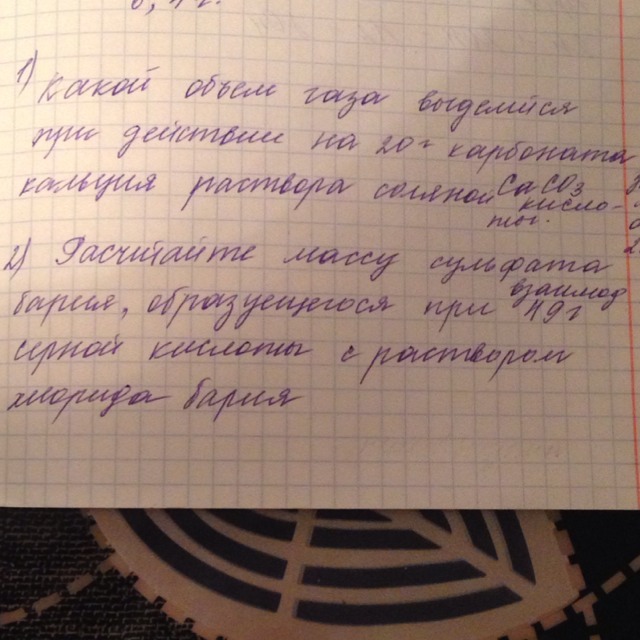 1) Какой объем газа выделийся
при действии на 20 г карбоната
кальция раствора соляной CaCO3
кисло-
ты.
2) Расчитайте массу сульфата
бария, образующегося при взаимод
49 г
серной кислоты с раствором
хлорида бария